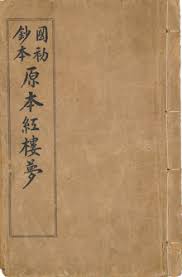 國初
鈔本
原本紅樓夢